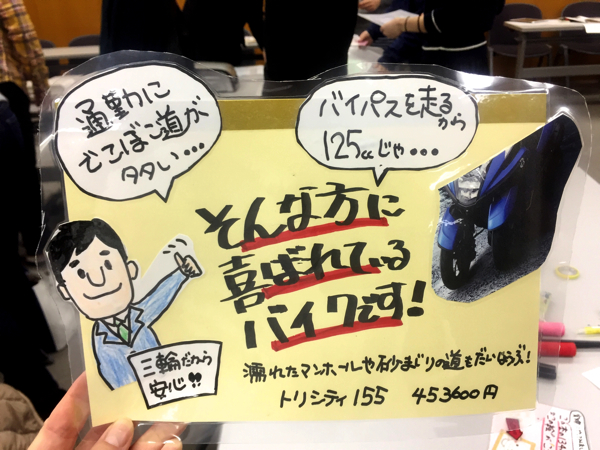 通勤に
でこぼこ道が
多い...
バイパスを走る
から
125ccじゃ...
そんな方に
喜ばれている
バイクです!
三輪だから
安心!!
濡れたマンホールや砂まじりの道もだいじょうぶ!
トリシティ155 453600円